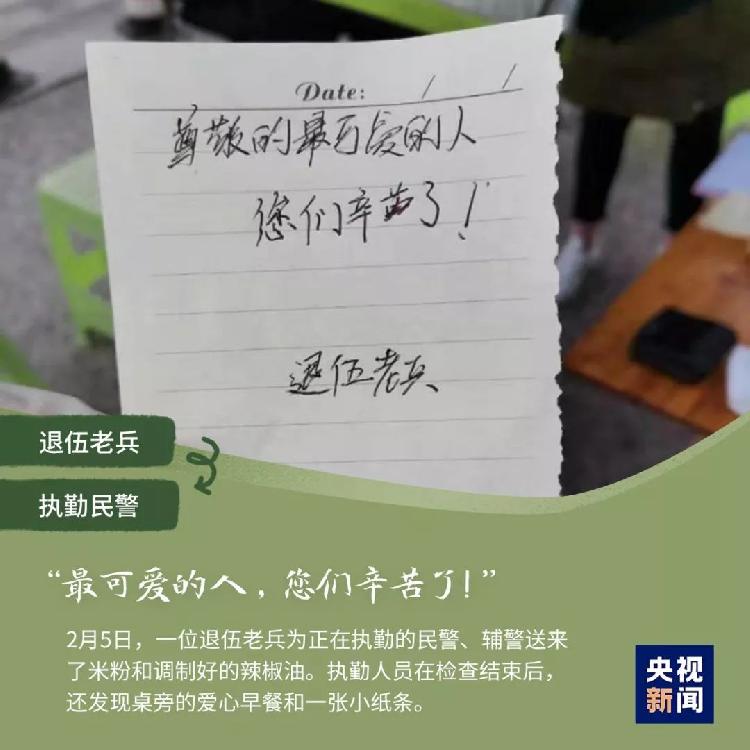 Date: / /
尊敬的最可爱的人
您们辛苦了!
退伍老兵
退伍老兵
执勤民警
“最可爱的人，您们辛苦了!”
2月5日，一位退伍老兵为正在执勤的民警、辅警送来
了米粉和调制好的辣椒油。执勤人员在检查结束后，
还发现桌旁的爱心早餐和一张小纸条。
央视
新闻